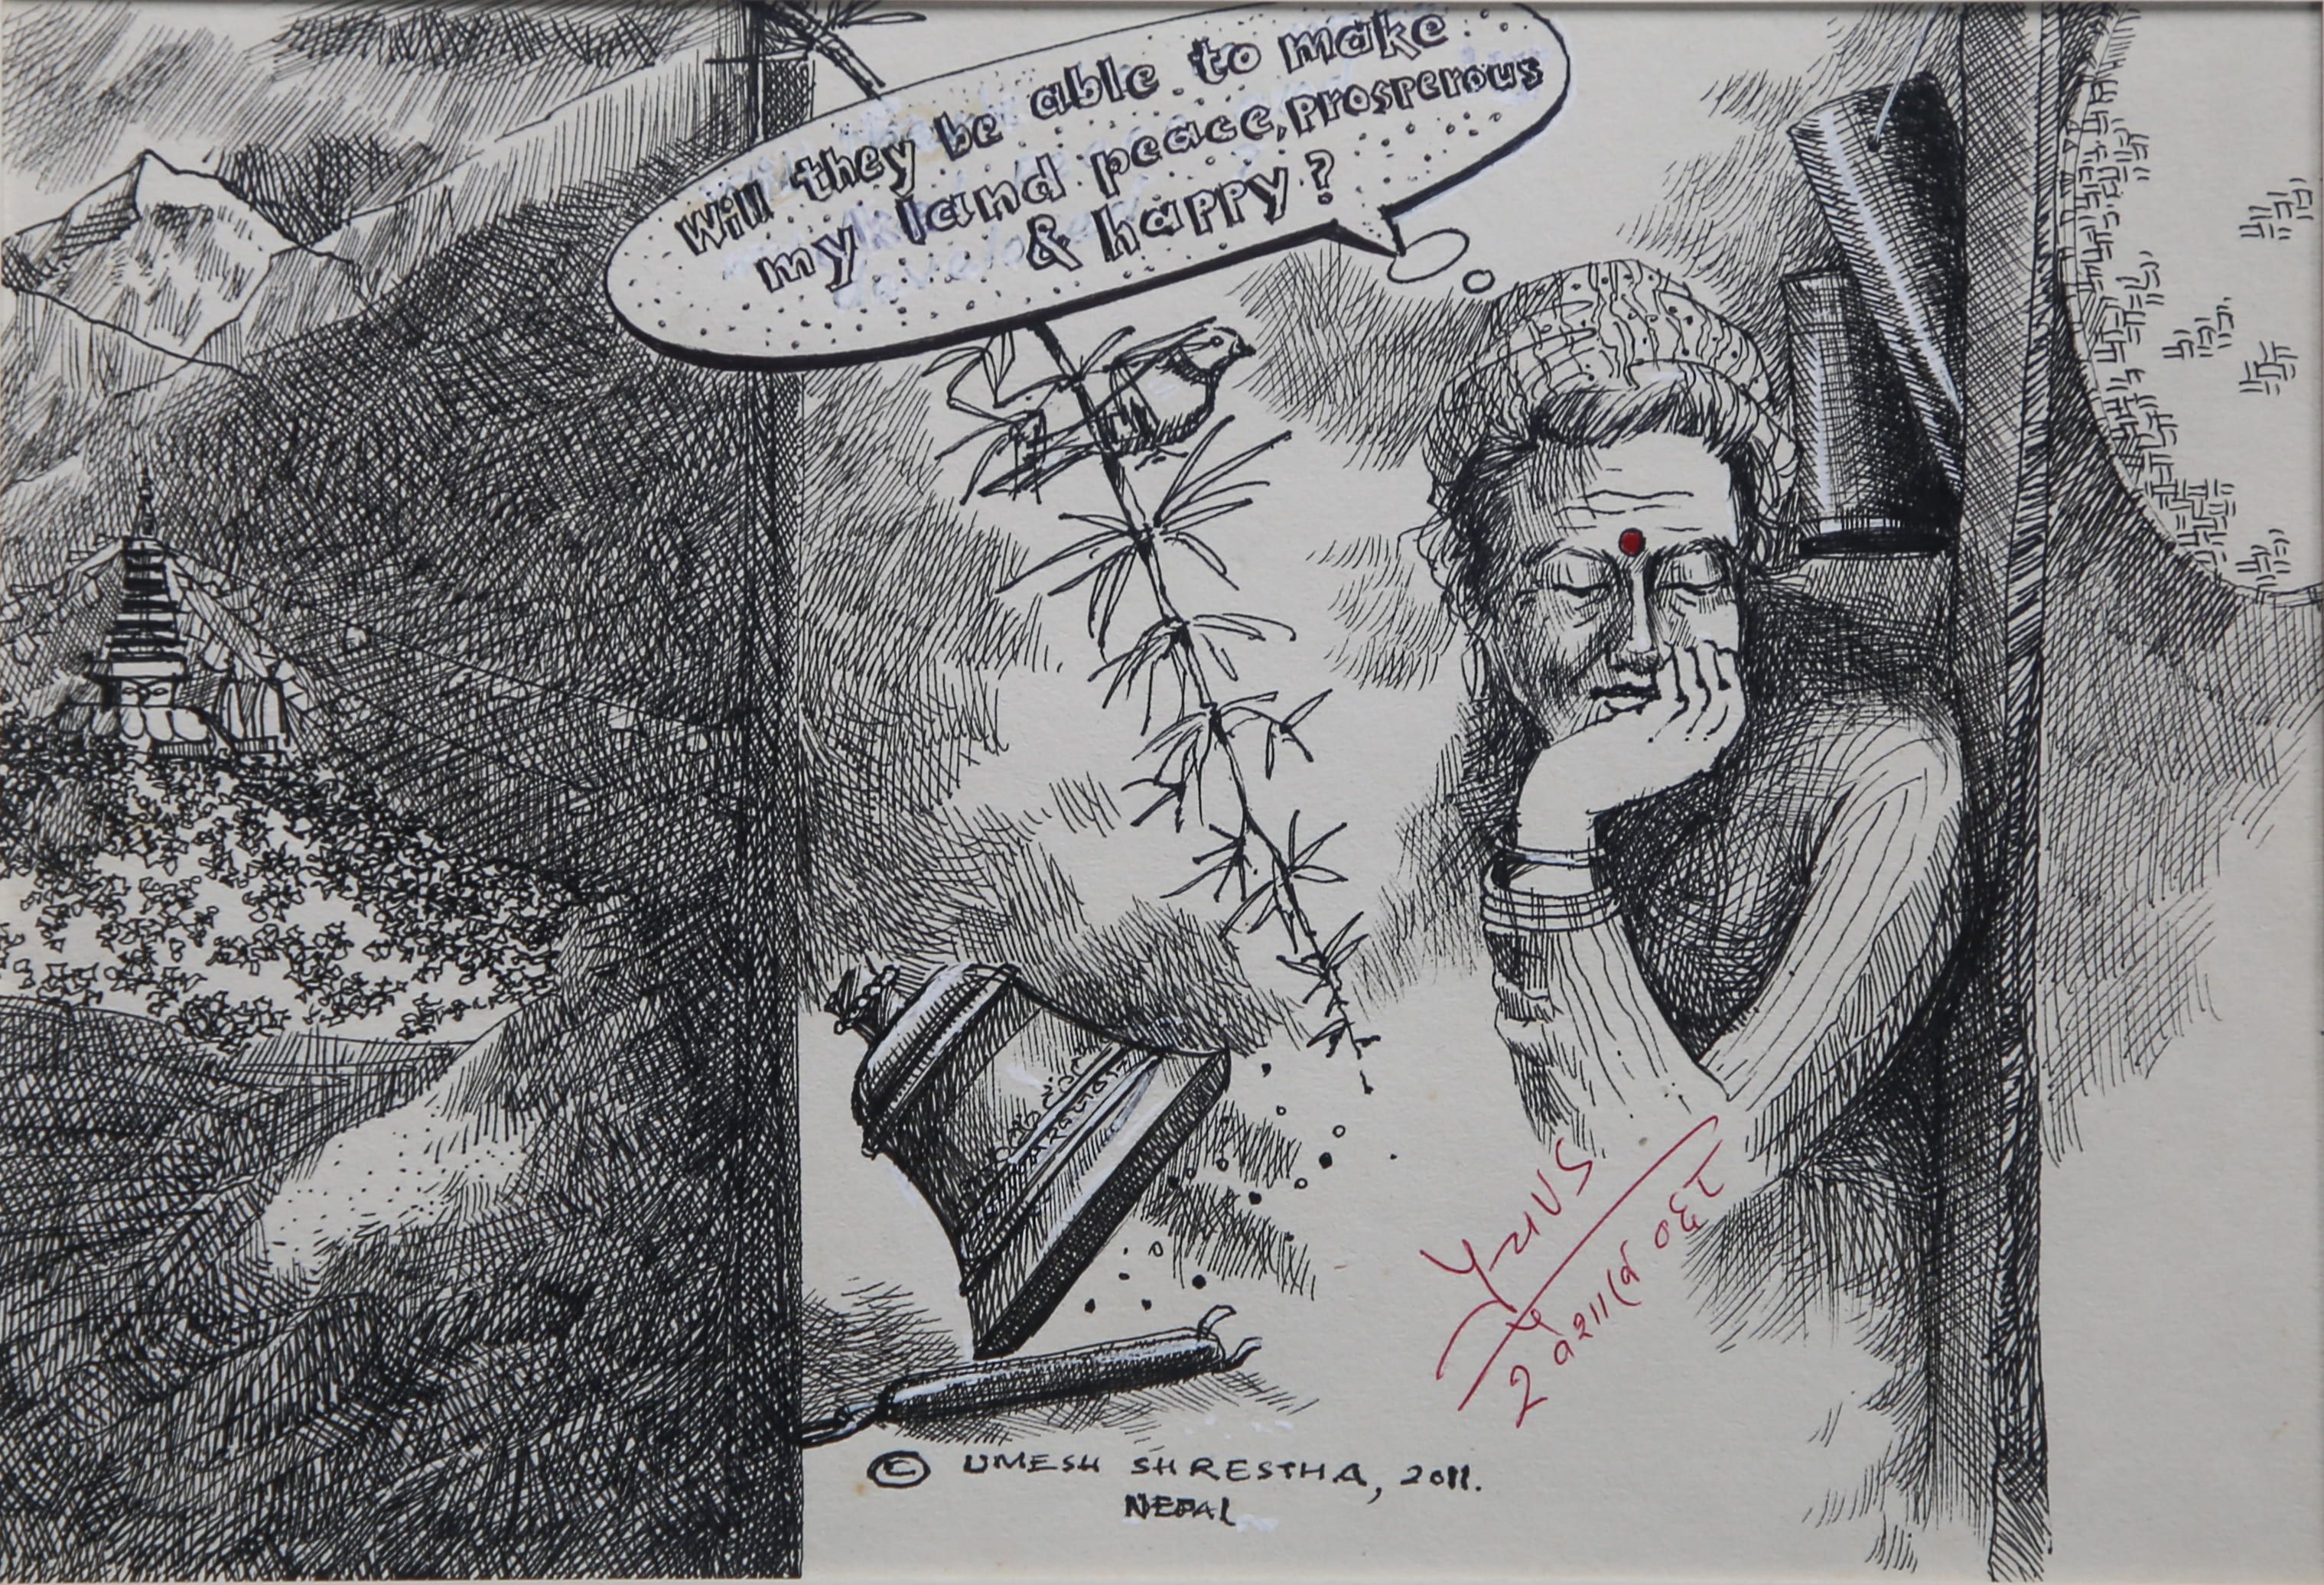 Will they be able to make
my land peace, prosperous
& happy?
© UMESH SHRESTHA, 2011.
NEPAL